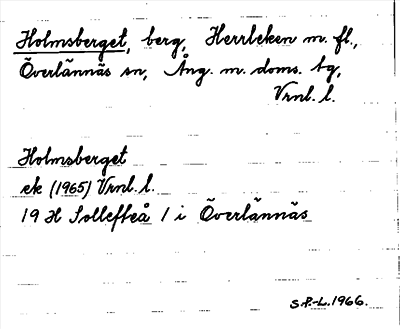 Holmsberget, berg, Herrleken m. fl.,
Överlännäs sn, Ång. m. doms. tg,
Vrnl. l.
Holmsberget
ek (1965) Vrnl. l.
19 H Sollefteå 1 i Överlännäs
S.P.-L. 1966.